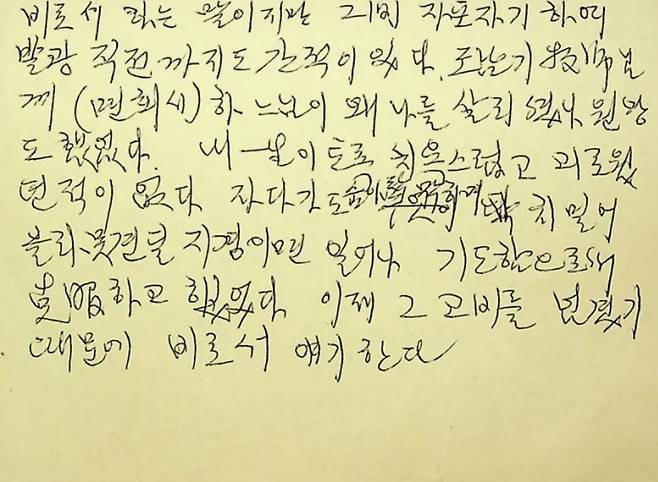 비로서 하는 말이지만 그땐 자포자기 하여
발광 직전까지도 간적이 있다. 
께 (면회시) 하느님이 왜 나를 살리셨나 원망
도 했었다. 내 一生이 토록 치욕스럽고 괴로웠
던적이 없다 자다가도 치밀어
불리 못견딜 지경이면 일어나 기도함으로서
克服하고 했었다. 이제 그 고비를 넘겼기
때문에 비로서 얘기한다